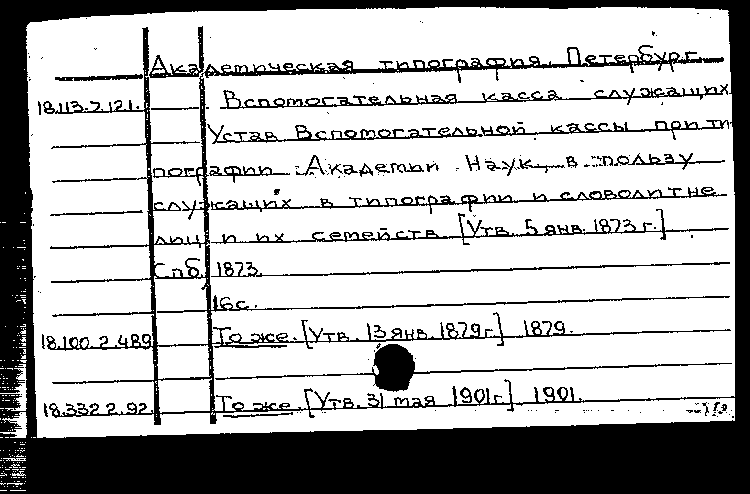 Академическая типография. Петербург.
18.113.2.121. Вспомогательная касса служащих
Устав Вспомогательной кассы при ти
пографии Академии Наук, в пользу
служащих в типографии и словолитне
лиц и их семейств [Утв. 5 янв. 1873 г.]
Спб, 1873.
16 с.
18.100.2.489 То же. [Утв. 13 янв. 1879 г.] 1879.
18.332.2.92. То же. [Утв. 31 мая 1901 г.] 1901.